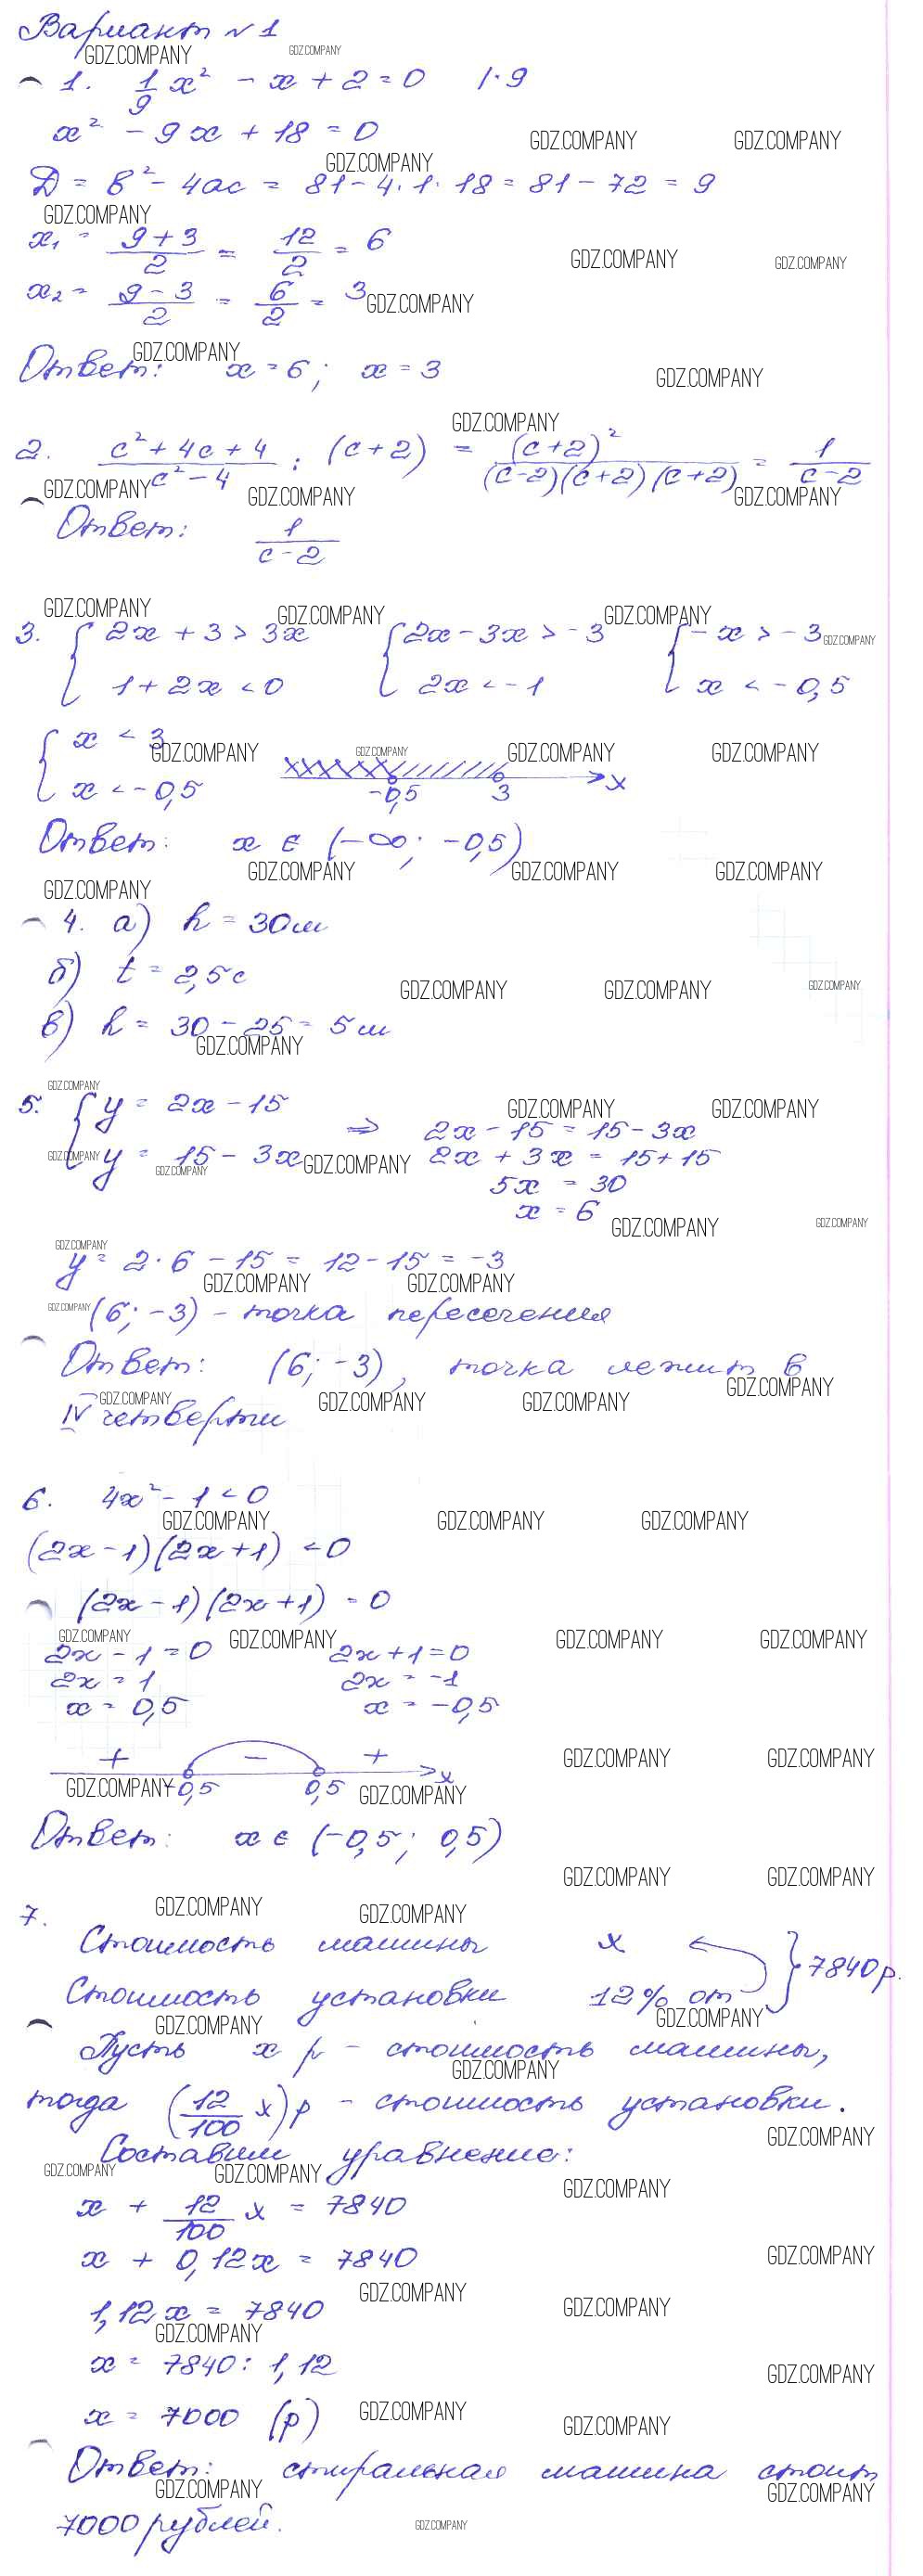 Вариант №1
1. 1/9 x² - x + 2 = 0 |·9
x² - 9x + 18 = 0
D = b² - 4ac = 81 - 4·1·18 = 81 - 72 = 9
x₁ = (9+3)/2 = 12/2 = 6
x₂ = (9-3)/2 = 6/2 = 3
Ответ: x = 6; x = 3
2. (c² + 4c + 4)/(c² - 4) : (c+2) = (c+2)²/((c-2)(c+2)(c+2)) = 1/(c-2)
Ответ: 1/(c-2)
3. { 2x + 3 > 3x { 2x - 3x > -3 { -x > -3
1 + 2x < 0 2x < -1 x < -0,5
{ x < 3
x < -0,5 -0,5 3 x
Ответ: x ∈ (-∞; -0,5)
4. а) h = 30м
б) t = 2,5с
в) h = 30 - 25 = 5м
5. { y = 2x - 15 ⇒ 2x - 15 = 15 - 3x
y = 15 - 3x 2x + 3x = 15 + 15
5x = 30
x = 6
y = 2·6 - 15 = 12 - 15 = -3
(6; -3) - точка пересечения
Ответ: (6; -3), точка лежит в
IV четверти
6. 4x² - 1 < 0
(2x - 1)(2x + 1) < 0
(2x - 1)(2x + 1) = 0
2x - 1 = 0 2x + 1 = 0
2x = 1 2x = -1
x = 0,5 x = -0,5
+ - +
-0,5 0,5 x
Ответ: x ∈ (-0,5; 0,5)
7.
Стоимость машины x } 7840р.
Стоимость установки 12% от
Пусть x р - стоимость машины,
тогда (12/100 x) р - стоимость установки.
Составим уравнение:
x + 12/100 x = 7840
x + 0,12x = 7840
1,12x = 7840
x = 7840 : 1,12
x = 7000 (р)
Ответ: стиральная машина стоит
7000 рублей.
GDZ.COMPANY